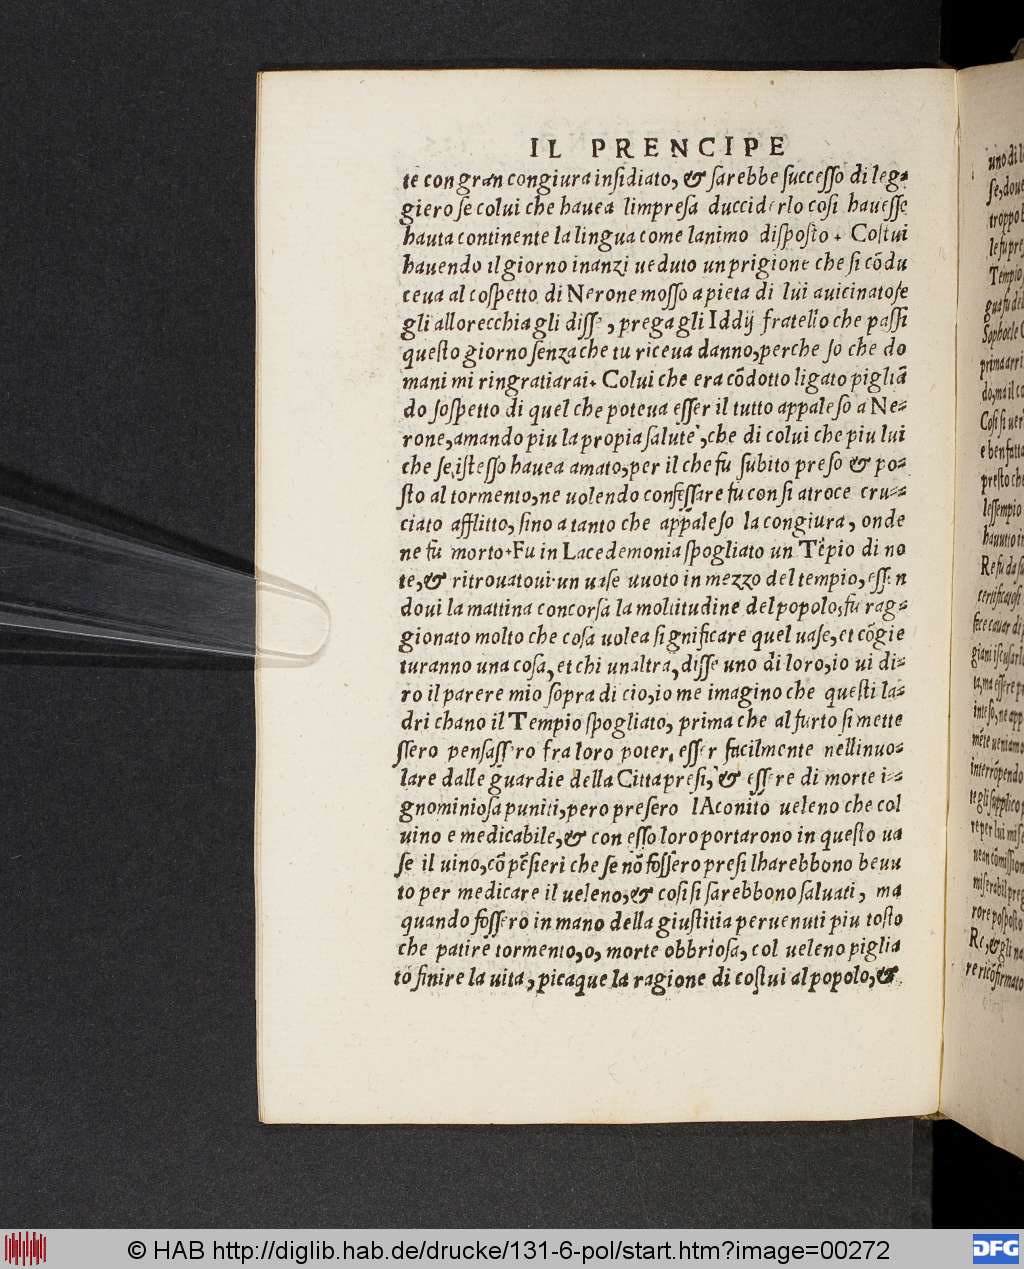 IL PRENCIPE
te con gran congiura insidiato, & sarebbe successo di leg=
giero se colui che hauea limpresa ducciderlo cosi hauesse
hauta continente la lingua come lanimo disposto. Costui
hauendo il giorno inanzi ueduto un prigione che si cõdu
ceua al cospetto di Nerone mosso a pieta di lui auicinatose
gli allorecchia gli disse, prega gli Iddij fratello che passi
questo giorno senza che tu riceua danno, perche so che do
mani mi ringratiarai. Colui che era cõdotto ligato pigliã
do sospetto di quel che poteua esser il tutto appaleso a Ne=
rone, amando piu la propia salute, che di colui che piu lui
che se istesso hauea amato, per il che fu subito preso & po=
sto al tormento, ne uolendo confessare fu con si atroce cru=
ciato afflitto, sino a tanto che appaleso la congiura, onde
ne fu morto. Fu in Lacedemonia spogliato un Tẽpio di no
te, & ritrouatoui un uase uuoto in mezzo del tempio, essen
doui la mattina concorsa la moltitudine del popolo, fu rag=
gionato molto che cosa uolea significare quel uase, et cõgie
turanno una cosa, et chi unaltra, disse uno di loro, io ui di=
ro il parere mio sopra di cio, io me imagino che questi la=
dri chano il Tempio spogliato, prima che al furto si mette
ssero pensassero fra loro poter, esser facilmente nellinuo=
lare dalle guardie della Citta presi, & essere di morte i=
gnominiosa puniti, pero presero lAconito ueleno che col
uino e medicabile, & con esso loro portarono in questo ua
se il uino, cõ pẽsieri che se nõ fossero presi lharebbono beuu
to per medicare il ueleno, & cosi si sarebbono saluati, ma
quando fossero in mano della giustitia peruenuti piu tosto
che patire tormento, o, morte obbriosa, col ueleno piglia
to finire la uita, picaque la ragione di costui al popolo, &
uno di l
se, doue
troppo
Tempio
Sophocle
prima
do, ma il
Cosi si
e ben fatta
presto che
lessempio
Re fu da
certificatosi
fece cauar di
ta, ma essere
inteso, ne app
interrõpendo
te gli supplico
re per lui mi se
miserabil preg
rore posposto
Re, & gli na
re ricõfirmato
© HAB http://diglib.hab.de/drucke/131-6-pol/start.htm?image=00272
DFG